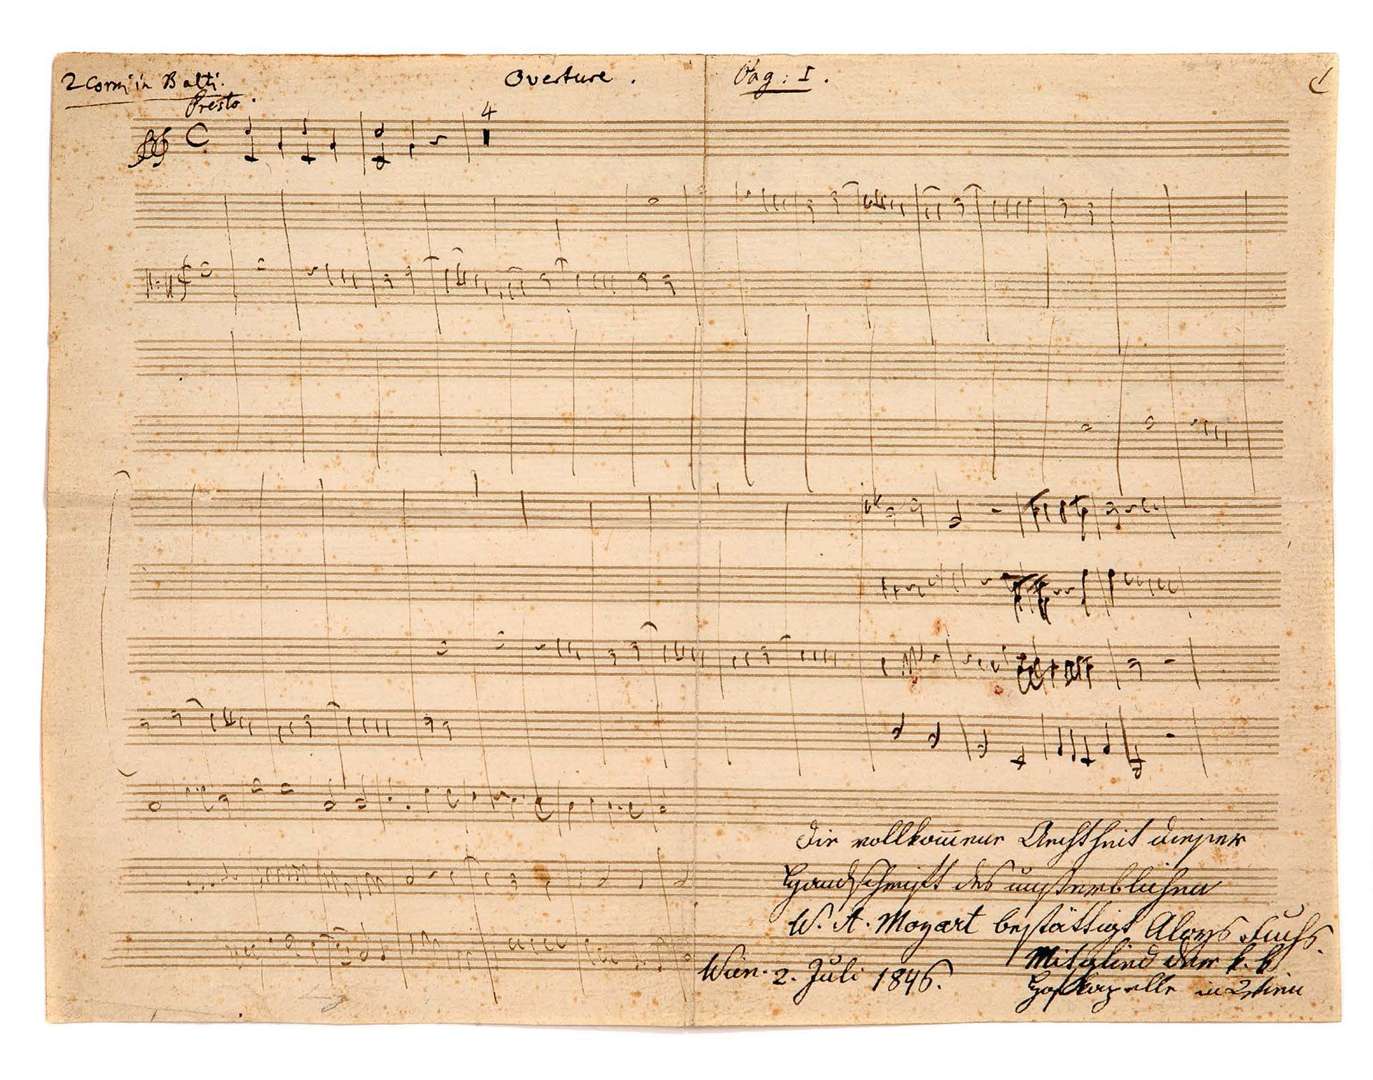 2 Corni in B alti.
Overture.
Pag: I.
1
Presto.
4
Die vollkom̄ene Aechtheit dieser
Handschrift des unsterblichen
W. A. Mozart bestättigt Aloys Fuchs.
Mitglied der k. k.
Wien. 2. Juli 1846.
Hofkapelle in Wien